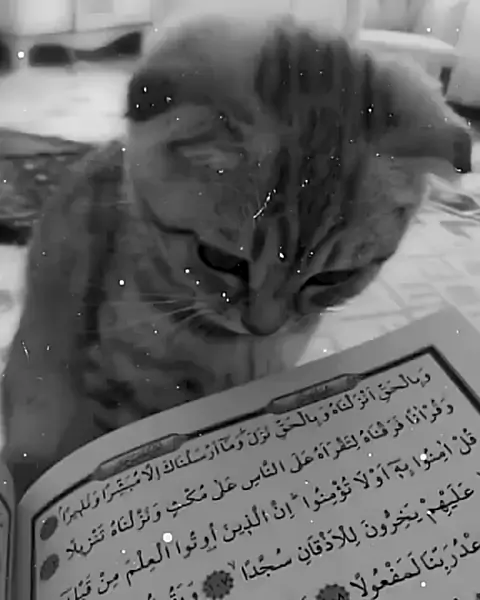 وَبِالْحَقِّ اَنْزَلْنَاهُ وَبِالْحَقِّ نَزَلَ وَمَٓا اَرْسَلْنَاكَ اِلَّا مُبَشِّرًا وَنَذِيرًا
وَقُرْاٰنًا فَرَقْنَاهُ لِتَقْرَاَهُ عَلَى النَّاسِ عَلٰى مُكْثٍ وَنَزَّلْنَاهُ تَنْزِيلًا
قُلْ اٰمِنُوا بِهٖٓ اَوْ لَا تُؤْمِنُوا اِنَّ الَّذِينَ اُوتُوا الْعِلْمَ مِنْ قَبْلِهٖ
عَلَيْهِمْ يَخِرُّونَ لِلْاَذْقَانِ سُجَّدًا وَيَقُو
عْدُ رَبِّنَا لَمَفْعُولًا